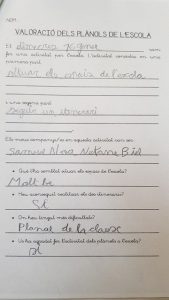 NOM:
VALORACIÓ DELS PLÀNOLS DE L'ESCOLA
El dimecres 26 gener vam
fer una activitat per l'escola. L'activitat constava en una
primera part
situar els espais de l'escola
I una segona part
seguir un itinerari
Els meus companys/es en aquesta activitat van ser:
Samuel Noa
Què t'ha semblat situar els espais de l'escola?
Molt bé
Heu aconseguit realitzar els dos itineraris?
Sí
On heu tingut més dificultats?
Planol de la classe
Us ha agradat fer l'activitat dels plànols a l'escola?
Sí